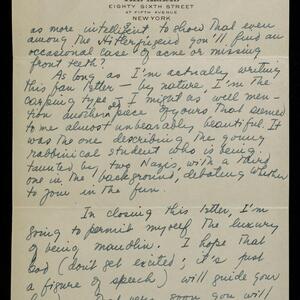 EIGHTY SIXTH STREET
AT FIFTH AVENUE
NEW YORK
as more intelligent to show that even
among the Hitlerjugend you'll find an
occasional case of acne or missing
front teeth?
As long as I'm actually writing
this fan letter – by nature, I'm the
carping type – I might as well men-
tion another piece of yours that seemed
to me almost unbearably beautiful. It
was the one describing the young
rabbinical student who is being
taunted by two Nazis, with a third
one in the background, debating whether
to join in the fun.
In closing this letter, I'm
going to permit myself the luxury
of being maudlin. I hope that
God (don't get excited; it's just
a figure of speech) will guide your
that very soon you will